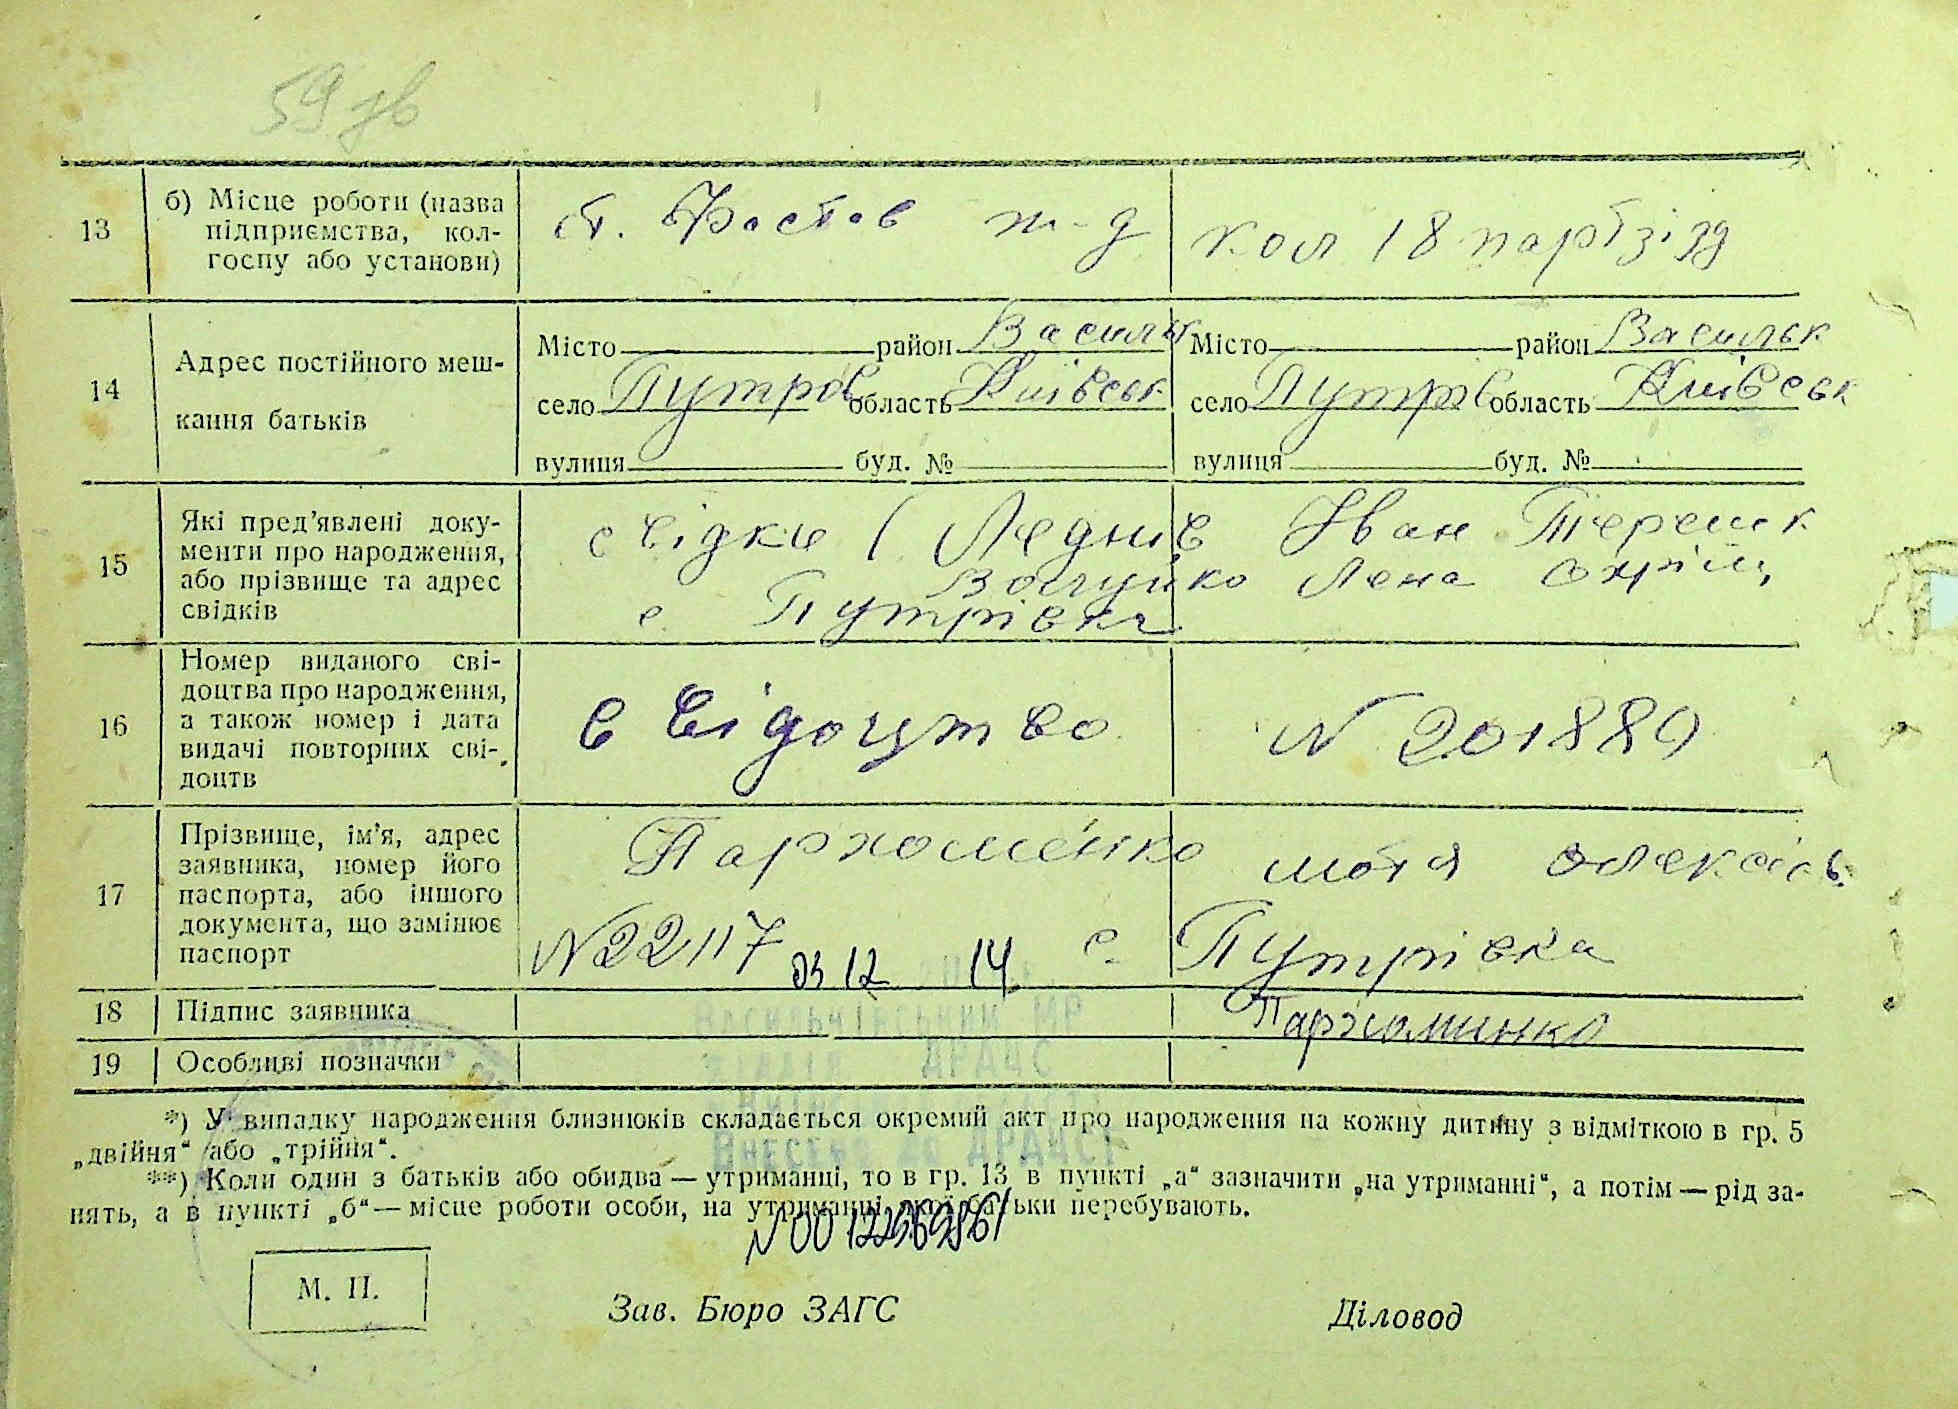 59 зв
13 б) Місце роботи (назва підприємства, колгоспу або установи) ст. Фастов ж-д кол 18 партзізд
14 Адрес постійного мешкання батьків
Місто район Васильк Місто район Васильк
село Путров область Київськ село Путрів область Київськ
вулиця буд. № вулиця буд. №
15 Які пред'явлені документи про народження, або прізвище та адрес свідків
свідки ( Леднів Іван Терешк
Лена Охрім
с. Путрівка
16 Номер виданого свідоцтва про народження, а також номер і дата видачі повторних свідоцтв
свідоцтво N 201889
17 Прізвище, ім'я, адрес заявника, номер його паспорта, або іншого документа, що замінює паспорт
Пархоменко Мотя Олексіів.
N 22117 с. Путрівка
12 14
18 Підпис заявника Пархоминко
Васильківський МР
ДРАЧС
19 Особливі позначки
*) У випадку народження близнюків складається окремий акт про народження на кожну дитину з відміткою в гр. 5
„двійня“ або „трійня“.
Внесено до ДРАЦСГ
**) Коли один з батьків або обидва — утриманні, то в гр. 13 в пункті „а“ зазначити „на утриманні“, а потім — рід за-
нять, а в пункті „б“ — місце роботи особи, на утриманні якої батьки перебувають.
М. П.
Зав. Бюро ЗАГС Діловод